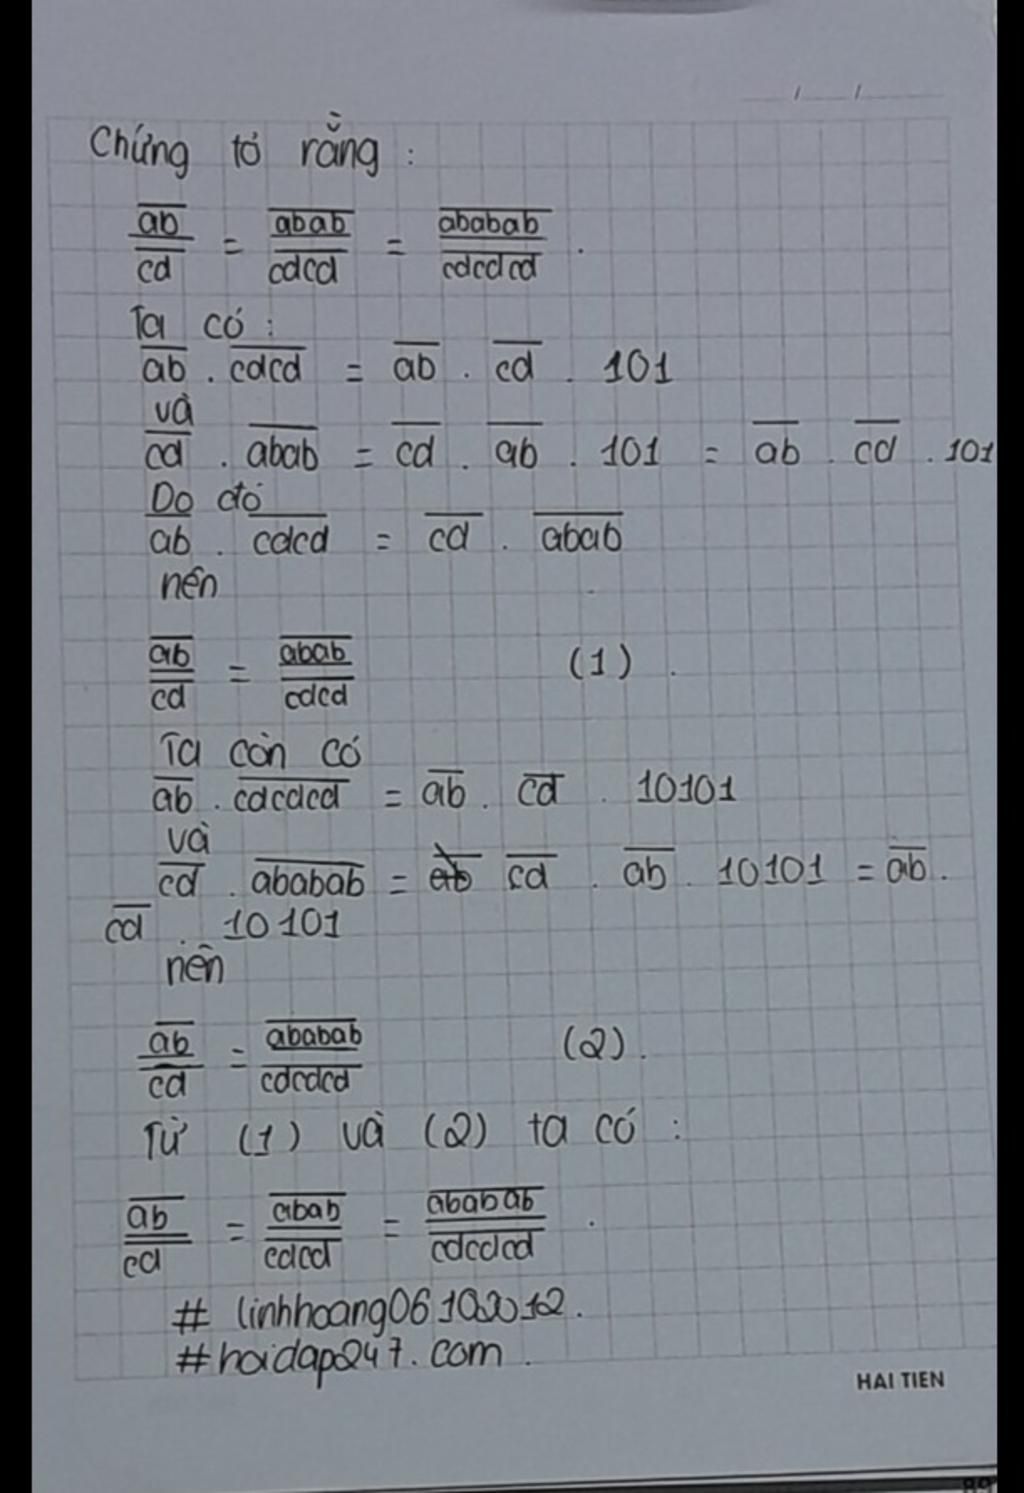 Chứng tỏ rằng :
\frac{\overline{ab}}{\overline{cd}} = \frac{\overline{abab}}{\overline{cdcd}} = \frac{\overline{ababab}}{\overline{cdcdcd}} .
Ta có :
\overline{ab} . \overline{cdcd} = \overline{ab} . \overline{cd} . 101
và
\overline{cd} . \overline{abab} = \overline{cd} . \overline{ab} . 101 = \overline{ab} . \overline{cd} . 101
Do đó
\overline{ab} . \overline{cdcd} = \overline{cd} . \overline{abab}
nên
\frac{\overline{ab}}{\overline{cd}} = \frac{\overline{abab}}{\overline{cdcd}} (1) .
Ta còn có
\overline{ab} . \overline{cdcdcd} = \overline{ab} . \overline{cd} . 10101
và
\overline{cd} . \overline{ababab} = \overline{cd} . \overline{ab} . 10101 = \overline{ab} .
\overline{cd} . 10101
nên
\frac{\overline{ab}}{\overline{cd}} = \frac{\overline{ababab}}{\overline{cdcdcd}} (2) .
Từ (1) và (2) ta có :
\frac{\overline{ab}}{\overline{cd}} = \frac{\overline{abab}}{\overline{cdcd}} = \frac{\overline{ababab}}{\overline{cdcdcd}} .
# linhhoang06102012 .
#hoidap247.com .
HAI TIEN